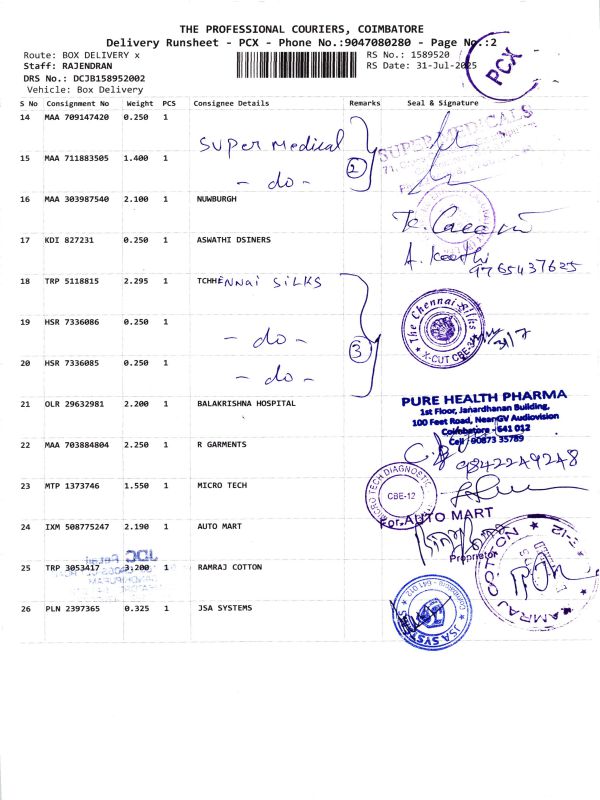 THE PROFESSIONAL COURIERS, COIMBATORE
Delivery Runsheet - PCX - Phone No.:9047080280 - Page No.:2
Route: BOX DELIVERY x
RS No.: 1589520
Staff: RAJENDRAN
RS Date: 31-Jul-2025
PCX
DRS No.: DCJB158952002
Vehicle: Box Delivery
S No Consignment No Weight PCS Consignee Details Remarks Seal & Signature
14 MAA 709147420 0.250 1 Super Medical
SUPER MEDICALS
15 MAA 711883505 1.400 1 - do - 2
16 MAA 303987540 2.100 1 NUWBURGH
17 KDI 827231 0.250 1 ASWATHI DSINERS
A. Keerthi
9765437625
18 TRP 5118815 2.295 1 TCHHENNAI SILKS
The Chennai Silks
X-CUT CBE
31/7
19 HSR 7336086 0.250 1 - do - 3
20 HSR 7336085 0.250 1 - do -
21 OLR 29632981 2.200 1 BALAKRISHNA HOSPITAL
PURE HEALTH PHARMA
1st Floor, Janardhanan Building,
100 Feet Road, Near GV Audiovision
Coimbatore - 641 012
Cell: 90873 35789
22 MAA 703884804 2.250 1 R GARMENTS
9842249248
23 MTP 1373746 1.550 1 MICRO TECH
MICRO TECH DIAGNOSTIC
CBE-12
24 IXM 508775247 2.190 1 AUTO MART
For AUTO MART
Proprietor
25 TRP 3053417 3.200 1 RAMRAJ COTTON
RAMRAJ COTTON
26 PLN 2397365 0.325 1 JSA SYSTEMS
JSA SYSTEMS
Coimbatore - 641 012